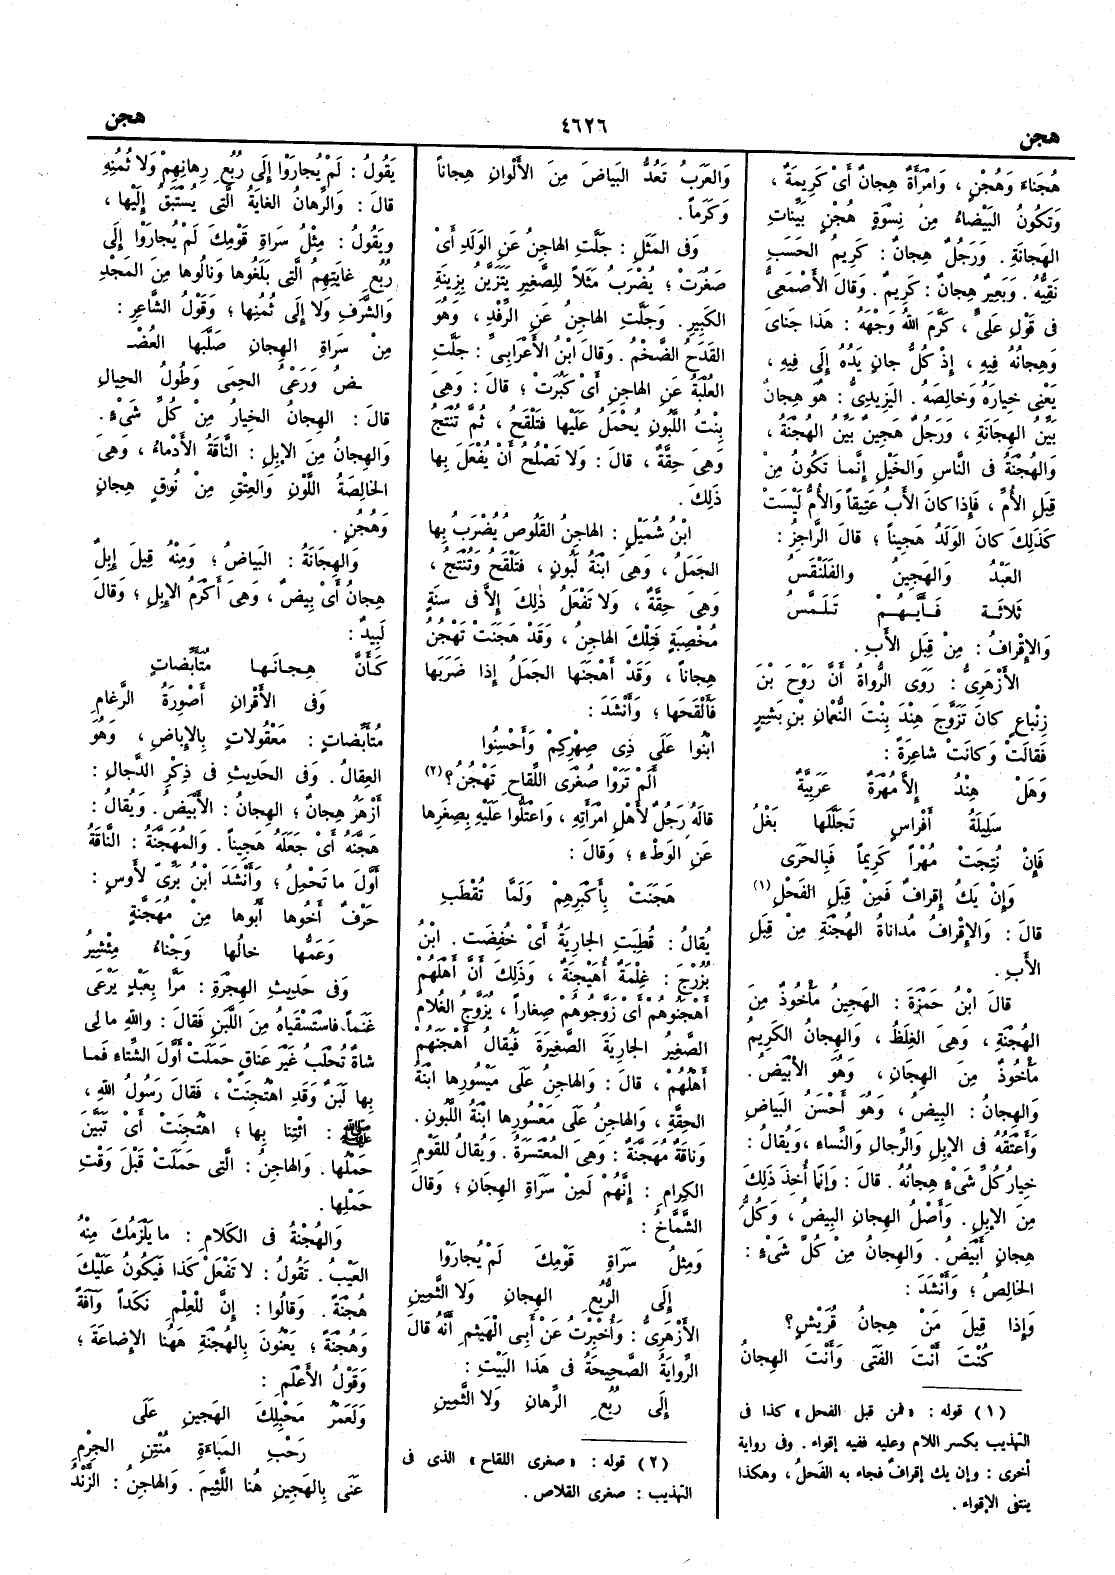 هجن
٤٦٢٦
هجن
هُجَناءَ وَهُجْنٍ ، وَامْرَأَةٌ هِجانٌ أَىْ كَرِيمَةٌ ،
وَتَكُونُ الْبَيْضاءُ مِنْ نِسْوَةٍ هُجْنٍ بَيِّناتِ
الهَجانَةِ . وَرَجُلٌ هِجانٌ : كَرِيمُ الحَسَبِ
نَقِيُّهُ . وَبَعِيرٌ هِجانٌ : كَرِيمٌ . وَقالَ الأَصْمَعِىُّ
فِى قَوْلِ عَلىٍّ ، كَرَّمَ اللهُ وَجْهَهُ : هَذا جَناىَ
وَهِجانُهُ فِيهِ ، إِذْ كُلُّ جانٍ يَدُهُ إِلَى فِيهِ ،
يَعْنِى خِيارَهُ وَخالِصَهُ . اليَزِيدِىُّ : هُوَ هِجانٌ
بَيِّنُ الهِجَانَةِ ، وَرَجُلٌ هَجِينٌ بَيِّنُ الهُجْنَةِ ،
وَالهُجْنَةُ فِى النَّاسِ وَالخَيْلِ إِنَّما تَكُونُ مِنْ
قِبَلِ الأُمِّ ، فَإِذا كانَ الأَبُ عَتِيقاً وَالأُمُّ لَيْسَتْ
كَذَلِكَ كانَ الوَلَدُ هَجِيناً ؛ قالَ الرَّاجِزُ :
العَبْدُ وَالهَجِينُ والفَلَنْقَسُ
ثَلاثَةٌ فَأَيَّهُمْ تَلَمَّسُ
وَالإِقْرافُ : مِنْ قِبَلِ الأَبِ .
الأَزْهَرِىُّ : رَوَى الرُّواةُ أَنَّ رَوْحَ بْنَ
زِنْباعٍ كانَ تَزَوَّجَ هِنْدَ بِنْتَ النُّعْمانِ بْنِ بَشِيرٍ
فَقالَتْ وَكانَتْ شاعِرَةً :
وَهَلْ هِنْدُ إِلاَّ مُهْرَةٌ عَرَبِيَّةٌ
سَلِيلَةُ أَفْراسٍ تَجَلَّلَها بَغْلُ
فَإِنْ نُتِجَتْ مُهْراً كَرِيماً فَبِالحَرَى
وَإِنْ يَكُ إِقْرافٌ فَمِنْ قِبَلِ الفَحْلِ (١)
قالَ : وَالإِقْرافُ مُداناةُ الهُجْنَةِ مِنْ قِبَلِ
الأَبِ .
قالَ ابْنُ حَمْزَةَ : الهَجِينُ مَأْخُوذٌ مِنَ
الهُجْنَةِ ، وَهِىَ الغِلَظُ ، وَالهِجانُ الكَرِيمُ
مَأْخُوذٌ مِنَ الهِجَانِ ، وَهُوَ الأَبْيَضُ .
وَالهِجانُ : البِيضُ ، وَهُوَ أَحْسَنُ البَياضِ
وَأَعْتَقُهُ فِى الإِبِلِ وَالرِّجالِ وَالنِّساءِ ، وَيُقالُ :
خِيارُ كُلِّ شَىْءٍ هِجانُهُ . قالَ : وَإِنَّما أُخِذَ ذَلِكَ
مِنَ الإِبِلِ . وَأَصْلُ الهِجانِ البِيضُ ، وَكُلُّ
هِجانٍ أَبْيَضُ . وَالهِجانُ مِنْ كُلِّ شَىْءٍ :
الخالِصُ ؛ وَأَنْشَدَ :
وَإِذا قِيلَ مَنْ هِجانُ قُرَيْشٍ ؟
كُنْتَ أَنْتَ الفَتَى وَأَنْتَ الهِجانُ
(١) قوله : « فمن قبل الفحل » كذا فى
التهذيب بكسر اللام وعليه ففيه إقواء . وفى رواية
أخرى : وإن يك إقرافٌ فجاء به الفَحلُ ، وهكذا
ينتفى الإقواء .
وَالعَرَبُ تَعُدُّ البَياضَ مِنَ الأَلْوانِ هِجاناً
وَكَرَماً .
وَفِى المَثَلِ : جَلَّتِ الهاجِنُ عَنِ الوَلَدِ أَىْ
صَغُرَتْ ؛ يُضْرَبُ مَثَلاً لِلصَّغِيرِ يَتَزَيَّنُ بِزِينَةِ
الكَبِيرِ . وَجَلَّتِ الهاجِنُ عَنِ الرِّفْدِ ، وَهُوَ
القَدَحُ الضَّخْمُ . وَقالَ ابْنُ الأَعْرابِىِّ : جَلَّتِ
العُلْبَةُ عَنِ الهاجِنِ أَىْ كَبُرَتْ ؛ قالَ : وَهِىَ
بِنْتُ اللَّبُونِ يُحْمَلُ عَلَيْها فَتَلْقَحُ ، ثُمَّ تُنْتَجُ
وَهِىَ حِقَّةٌ ، قالَ : وَلا تَصْلُحُ أَنْ يُفْعَلَ بِها
ذَلِكَ .
ابْنُ شُمَيْلٍ : الهاجِنُ القَلُوصُ يُضْرَبُ بِها
الجَمَلُ ، وَهِىَ ابْنَةُ لَبُونٍ ، فَتَلْقَحُ وَتُنْتَجُ ،
وَهِىَ حِقَّةٌ ، وَلا تَفْعَلُ ذَلِكَ إِلاَّ فى سَنَةٍ
مُخْصِبَةٍ فَتِلْكَ الهاجِنُ ، وَقَدْ هَجَنَتْ تَهْجُنُ
هِجاناً ، وَقَدْ أَهْجَنَها الجَمَلُ إِذا ضَرَبَها
فَأَلْقَحَها ؛ وَأَنْشَدَ :
ابْنُوا عَلَى ذِى صِهْرِكِمْ وَأَحْسِنُوا
أَلَمْ تَرَوْا صُغْرَى اللِّقاحِ تَهْجُنُ ؟ (٢)
قالَهُ رَجُلٌ لأَهْلِ امْرَأَتِهِ ، وَاعْتَلُّوا عَلَيْهِ بِصِغَرِها
عَنِ الوَطْءِ ؛ وَقالَ :
هَجَنَتْ بِأَكْبَرِهِمْ وَلَمَّا تُقْطَبِ
يُقالُ : قُطِبَتِ الجارِيَةُ أَىْ خُفِضَت . ابْنُ
بُزُرْجَ : غِلْمَةٌ أُهَيْجِنَةٌ ، وَذَلِكَ أَنَّ أَهْلَهُمْ
أَهْجَنُوهُمْ أَىْ زَوَّجُوهُمْ صِغاراً ، يُزَوَّجُ الغُلامُ
الصَّغِيرُ الجارِيَةَ الصَّغِيرَةَ فَيُقالُ أَهْجَنَهُمْ
أَهْلُهُمْ ، قالَ : وَالهاجِنُ عَلَى مَيْسُورِها ابْنَةُ
الحِقَّةِ ، وَالهاجِنُ عَلَى مَعْسُورِها ابْنَةُ اللَّبُونِ .
وَناقَةٌ مُهَجَّنَةٌ : وَهِىَ المُعْتَسَرَةُ . وَيُقالُ لِلْقَوْمِ
الكِرامِ : إِنَّهُمْ لَمِنْ سَرَاةِ الهِجَانِ ؛ وَقالَ
الشَّمَّاخُ :
وَمِثلُ سَرَاةِ قَوْمِكَ لَمْ يُجارَوْا
إِلَى الرُّبُعِ الهِجانِ وَلا الثَّمِينِ
الأَزْهَرِىُّ : وَأُخْبِرْتُ عَنْ أَبِى الْهَيْثمِ أَنَّهُ قالَ
الرِّوايَةُ الصَّحِيحَةُ فِى هَذا البَيْتِ :
إِلَى رُبُعِ الرِّهانِ وَلا الثَّمِينِ
(٢) قوله : « صغرى اللقاح » الذى فى
التهذيب : صغرى القلاص .
يَقُولُ : لَمْ يُجارَوْا إِلَى رُبُعِ رِهانِهِمْ وَلا ثُمُنِهِ
قالَ : وَالرِّهانُ الغايَةُ الَّتِى يُسْتَبَقُ إِلَيْها ،
وَيَقُولُ : مِثْلُ سَرَاةِ قَوْمِكَ لَمْ يُجارَوْا إِلَى
رُبُعِ غايَتِهِمُ الَّتِى بَلَغُوها وَنالُوها مِنَ المَجْدِ
وَالشَّرَفِ وَلا إِلَى ثُمُنِها ؛ وَقَوْلُ الشَّاعِرِ :
مِنْ سَراةِ الهِجانِ صَلَّبَها العُضْـ
ـضُ وَرَعْىُ الحِمَى وَطُولُ الحِيالِ
قالَ : الهِجانُ الخِيارُ مِنْ كُلِّ شَىْءٍ .
وَالهِجانُ مِنَ الإِبِلِ : النَّاقَةُ الأَدْماءُ ، وَهِىَ
الخالِصَةُ اللَّوْنِ وَالعِتْقِ مِنْ نُوقٍ هِجانٍ
وَهُجُنٍ .
وَالهِجَانَةُ : البَياضُ ؛ وَمِنْهُ قِيلَ إِبِلٌ
هِجانٌ أَىْ بِيضٌ ، وَهِىَ أَكْرَمُ الإِبِلِ ؛ وَقالَ
لَبِيدٌ :
كَأَنَّ هِجانَها مُتَأَبِّضاتٍ
وَفِى الأَقْرانِ أَصْوِرَةُ الرَّغامِ
مُتَأَبِّضاتٍ : مَعْقُولاتٍ بِالإِباضِ ، وَهُوَ
العِقالُ . وَفِى الحَدِيثِ فِى ذِكْرِ الدَّجالِ :
أَزْهَرُ هِجانٌ ؛ الهِجانُ : الأَبْيَضُ . وَيُقالُ :
هَجَّنَهُ أَىْ جَعَلَهُ هَجِيناً . وَالمُهَجَّنَةُ : النَّاقَةُ
أَوَّلَ ما تَحْمِلُ ؛ وَأَنْشَدَ ابْنُ بَرِّىٍّ لأَوسٍ :
حَرْفٌ أَخُوها أَبُوها مِنْ مُهَجَّنَةٍ
وَعَمُّها خالُها وَجْناءُ مِئْشِيرُ
وَفِى حَدِيثِ الهِجْرَةِ : مَرَّا بِعَبْدٍ يَرْعَى
غَنَماً، فَاسْتَسْقَياهُ مِنَ اللَّبَنِ فَقالَ : وَاللهِ ما لِى
شاةٌ تُحْلَبُ غَيْرَ عَناقٍ حَمَلَتْ أَوَّلَ الشِّتاءِ فَما
بِها لَبَنٌ وَقَدِ اهْتُجِنَتْ ، فَقالَ رَسُولُ اللهِ ،
ﷺ : ائْتِنا بِها ؛ اهْتُجِنَتْ أَىْ تَبَيَّنَ
حَمْلُها . وَالهاجِنُ : الَّتِى حَمَلَتْ قَبْلَ وَقْتِ
حَمْلِها .
وَالهُجْنَةُ فِى الكَلامِ : ما يَلْزَمُكَ مِنْهُ
العَيْبُ . تَقُولُ : لا تَفْعَلْ كَذا فَيَكُونَ عَلَيْكَ
هُجْنَةً . وَقالُوا : إِنَّ لِلْعِلْمِ نَكَداً وَآفَةً
وَهُجْنَةً ؛ يَعْنُونَ بِالهُجْنَةِ هَهُنا الإِضاعَةَ ؛
وَقَوْلُ الأَعْلَمِ :
وَلَعَمْرُ مَحْبِلِكَ الهَجِينِ عَلَى
رَحْبِ المَباءَةِ مُنْتِنِ الجِرْمِ
عَنَى بِالهَجِينِ هُنا اللَّئِيمَ . وَالهاجِنُ : الزَّنْدُ